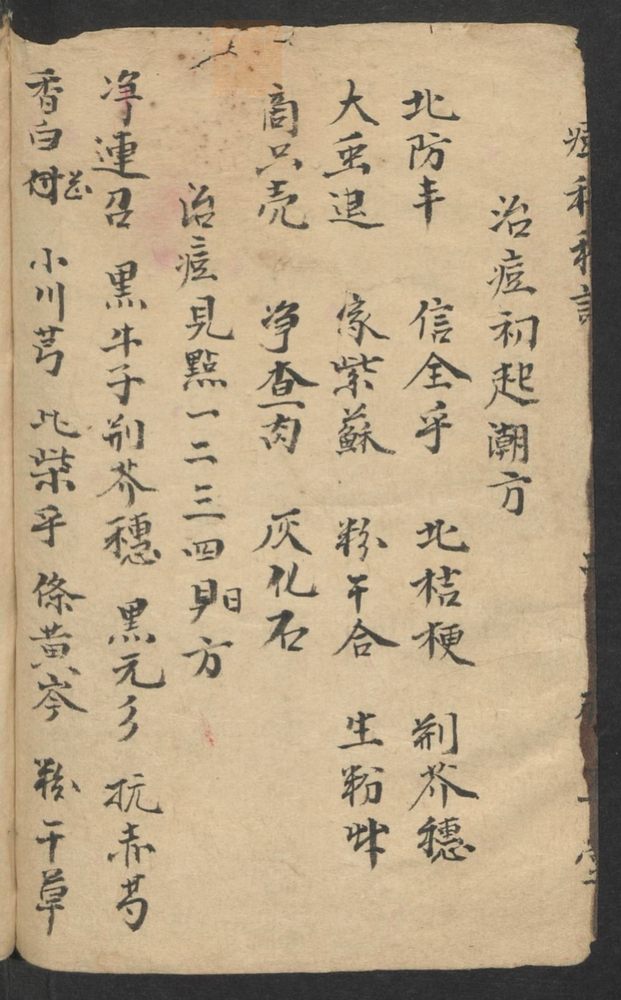 治痘初起潮方
北防丰 信全乎 北桔梗 荆芥穗
大虫退 家紫蘇 粉干合 生粉艸
商只壳 净查肉 灰化石
治痘見點一二三四日方
净連召 黑牛子 荆芥穗 黑元 抗赤芍
香白芷 小川芎 北柴乎 條黄岑 粉干草